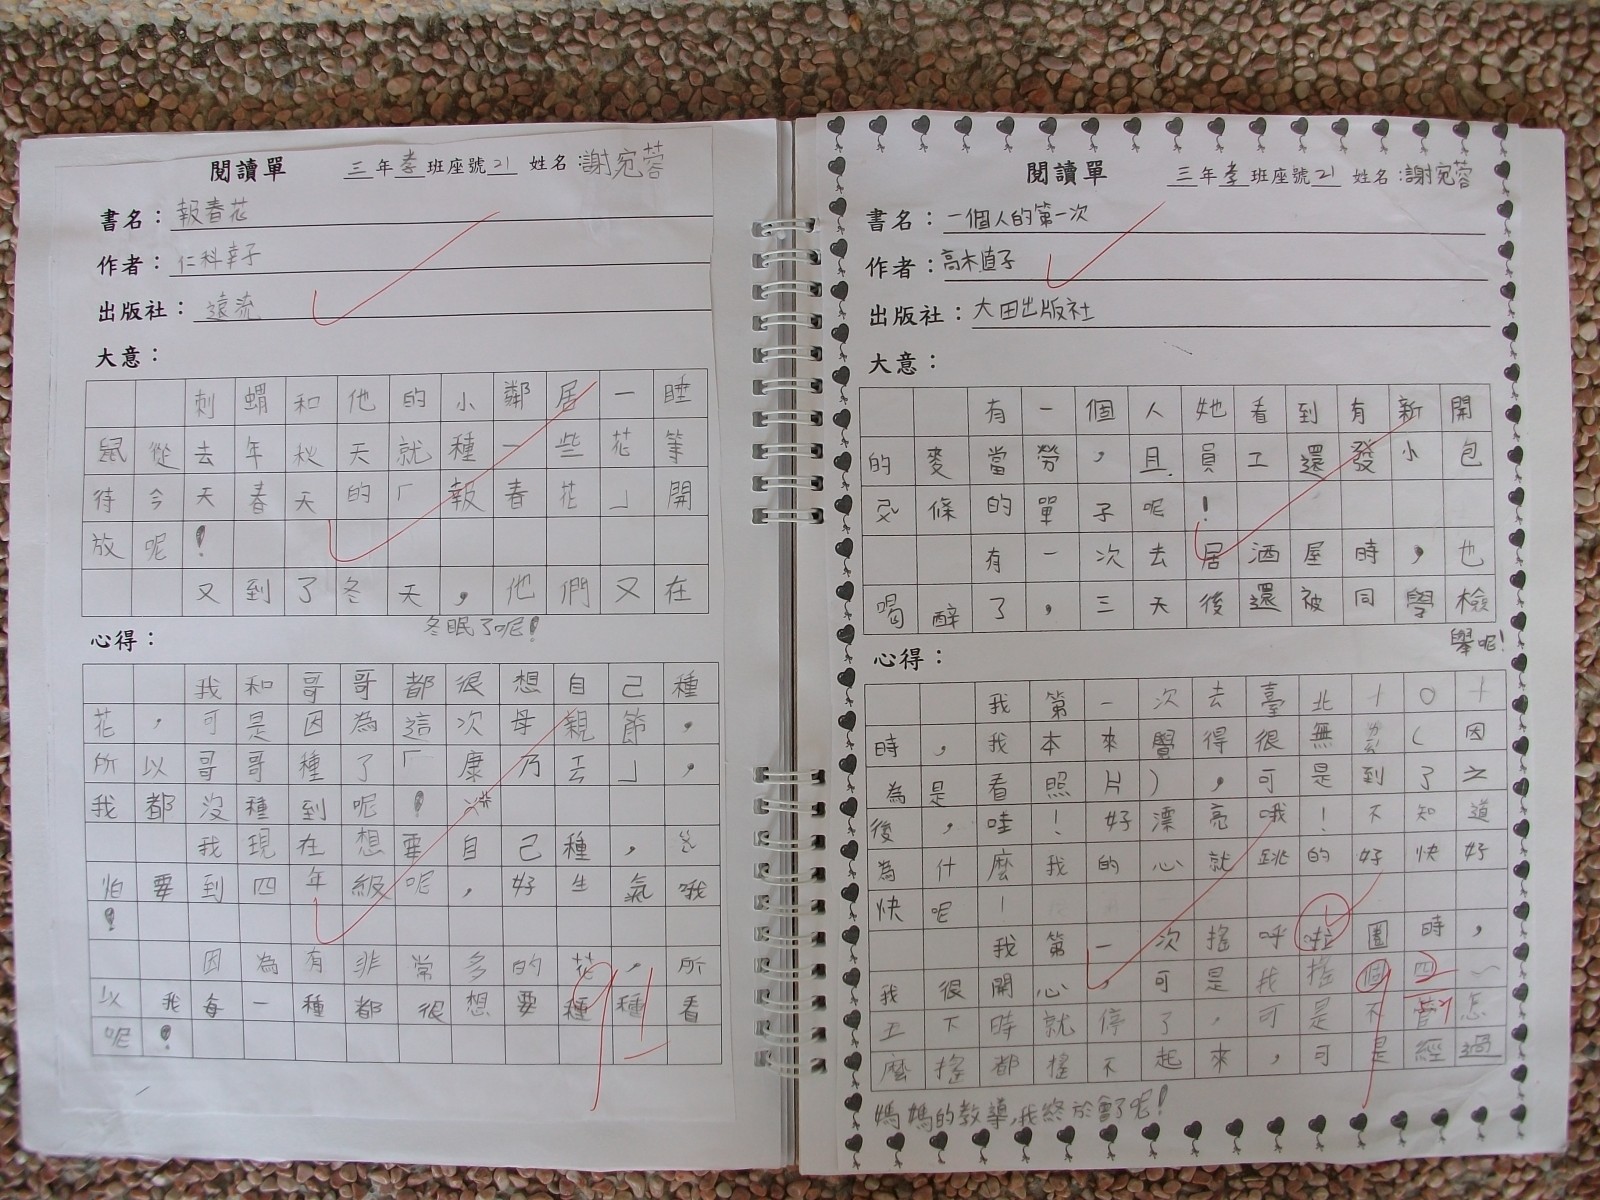 閱讀單 三年孝班座號21 姓名：謝宛蓉
書名：報春花
作者：仁科幸子
出版社：遠流
大意：
刺蝟和他的小鄰居一睡
鼠從去年秋天就種一些花等
待今天春天的「報春花」開
放呢！
又到了冬天，他們又在
冬眠了呢！
心得：
我和哥哥都很想自己種
花，可是因為這次母親節，
所以哥哥種了「康乃馨」，
我都沒種到呢！
我現在想要自己種，
怕要到四年級呢，好生氣哦
！
因為有非常多的花，所
以我每一種都很想要種種看
呢！
91
閱讀單 三年孝班座號21 姓名：謝宛蓉
書名：一個人的第一次
作者：高木直子
出版社：大田出版社
大意：
有一個人她看到有新開
的麥當勞，且員工還發小包
薯條的單子呢！
有一次去居酒屋時，也
喝醉了，三天後還被同學檢
舉呢！
心得：
我第一次去臺北一0一
時，我本來覺得很無ㄌㄧㄠˊ（因
為是看照片），可是到了之
後，哇！好漂亮哦！不知道
為什麼我的心就跳的好快好
快呢！
我第一次搖呼拉圈時，
我很開心，可是我搖個四～
五下時就停了，可是不管怎
麼搖都搖不起來，可是經過
媽媽的教導，我終於會了呢！
91